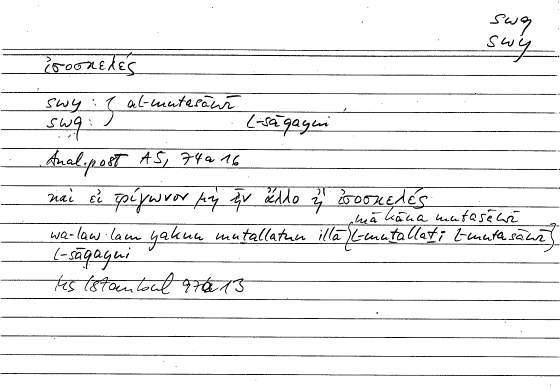 swq
swy
ἰσοσκελές
swy : } al-mutasāwī
swq : } l-sāqayni
Anal. post A5, 74a16
καὶ εἰ τρίγωνον μὴ ἦν ἄλλο ἢ ἰσοσκελές
mā kāna mutasāwī
wa-law lam yakun muṯallaṯun illā {l-muṯallaṯi l-mutasāwī}
l-sāqayni
Ms Istanbul 97a13